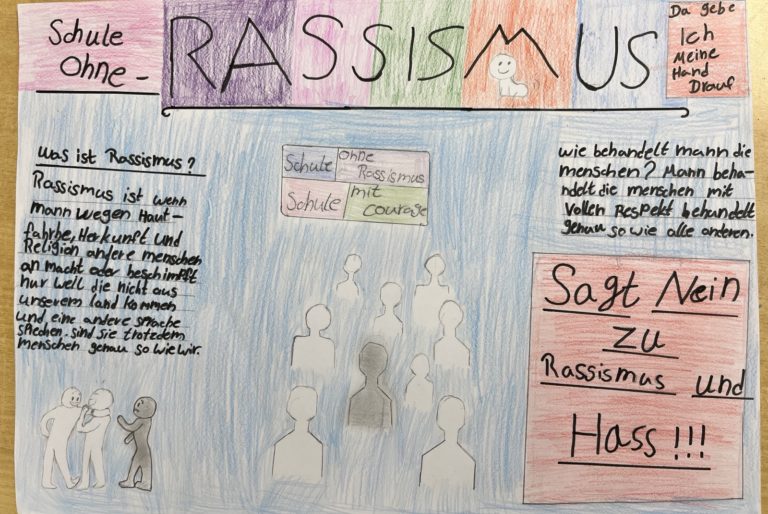 Schule
Ohne-
RASSISMUS
Da gebe
Ich
Meine
Hand
Drauf
Was ist Rassismus?
Rassismus ist wenn
mann wegen Haut-
fahrbe, Herkunft und
Religion andere menschen
an macht oder beschimpft
nur weil die nicht aus
unserem land kommen
und eine andere sprache
sprechen. sind sie trotzdem
menschen genau so wie wir.
Schule ohne Rassismus
Schule mit courage
wie behandelt mann die
menschen? Mann beha-
ndelt die menschen mit
vollen Respekt behandelt
genau so wie alle anderen.
Sagt Nein
zu
Rassismus und
Hass!!!